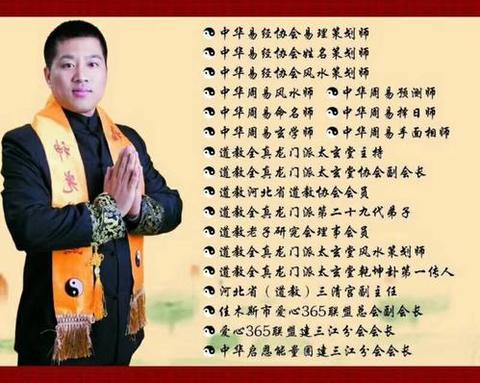 中华易经协会易理策划师
中华易经协会姓名策划师
中华易经协会风水策划师
中华周易风水师 中华周易预测师
中华周易命名师 中华周易择日师
中华周易玄学师 中华周易手面相师
道教全真龙门派太玄堂主持
道教全真龙门派太玄堂协会副会长
道教河北省道教协会会员
道教全真龙门派第二十九代弟子
道教老子研究会理事会员
道教全真龙门派太玄堂风水策划师
道教全真龙门派太玄堂乾坤卦第一传人
河北省（道教）三清宫副主任
佳木斯市爱心365联盟总会副会长
爱心365联盟建三江分会会长
中华启恩能量团建三江分会会长